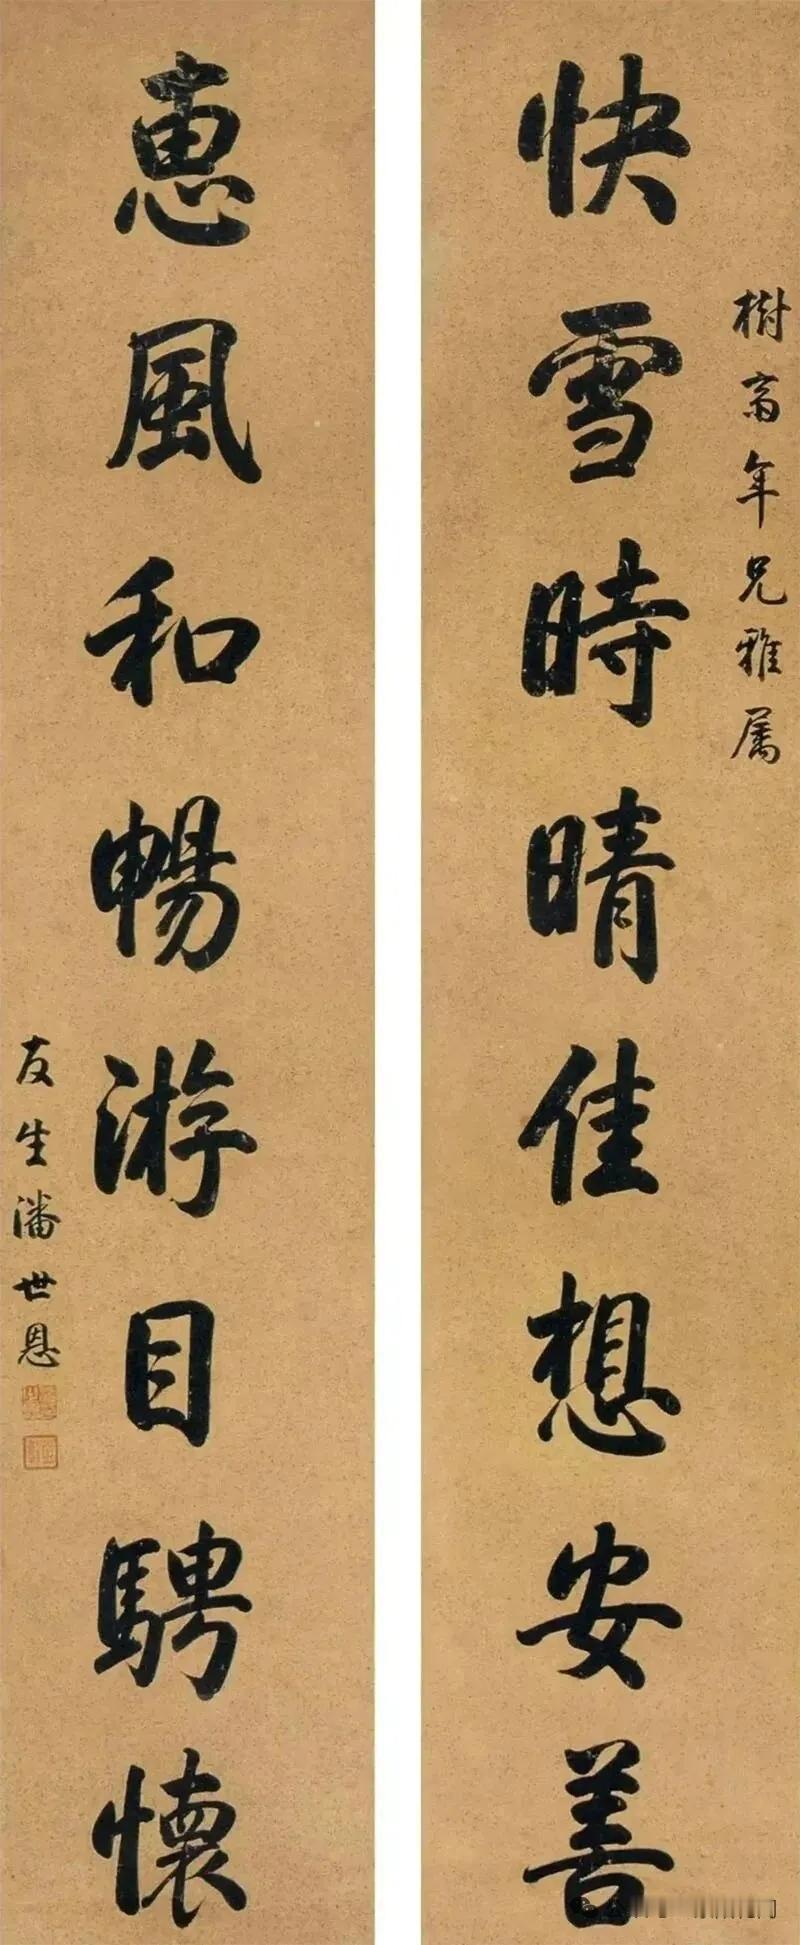 快雪時晴佳想安善
樹齋年兄雅屬
惠風和暢游目騁懷
友生潘世恩